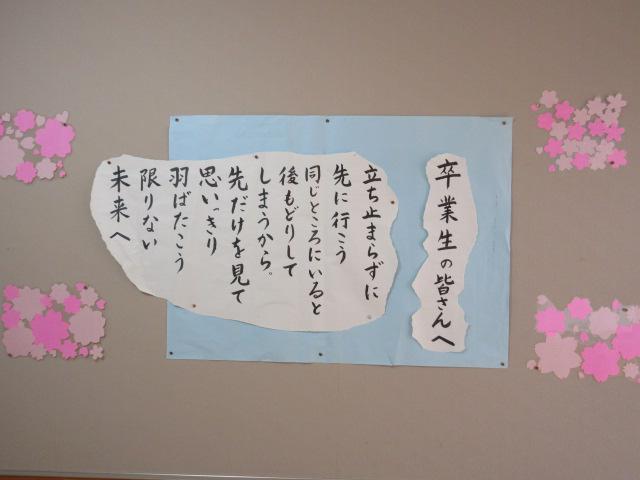 卒業生の皆さんへ
立ち止まらずに
先に行こう
同じところにいると
後もどりして
しまうから。
先だけを見て
思いっきり
羽ばたこう
限りない
未来へ